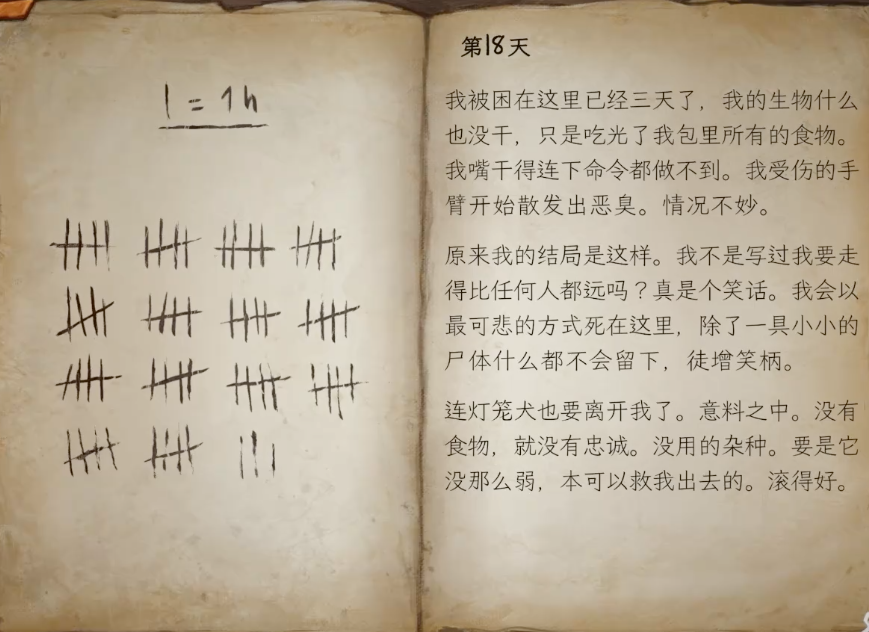 1 = 1h
第18天
我被困在这里已经三天了，我的生物什么
也没干，只是吃光了我包里所有的食物。
我嘴干得连下命令都做不到。我受伤的手
臂开始散发出恶臭。情况不妙。
原来我的结局是这样。我不是写过我要走
得比任何人都远吗？真是个笑话。我会以
最可悲的方式死在这里，除了一具小小的
尸体什么都不会留下，徒增笑柄。
连灯笼犬也要离开我了。意料之中。没有
食物，就没有忠诚。没用的杂种。要是它
没那么弱，本可以救我出去的。滚得好。